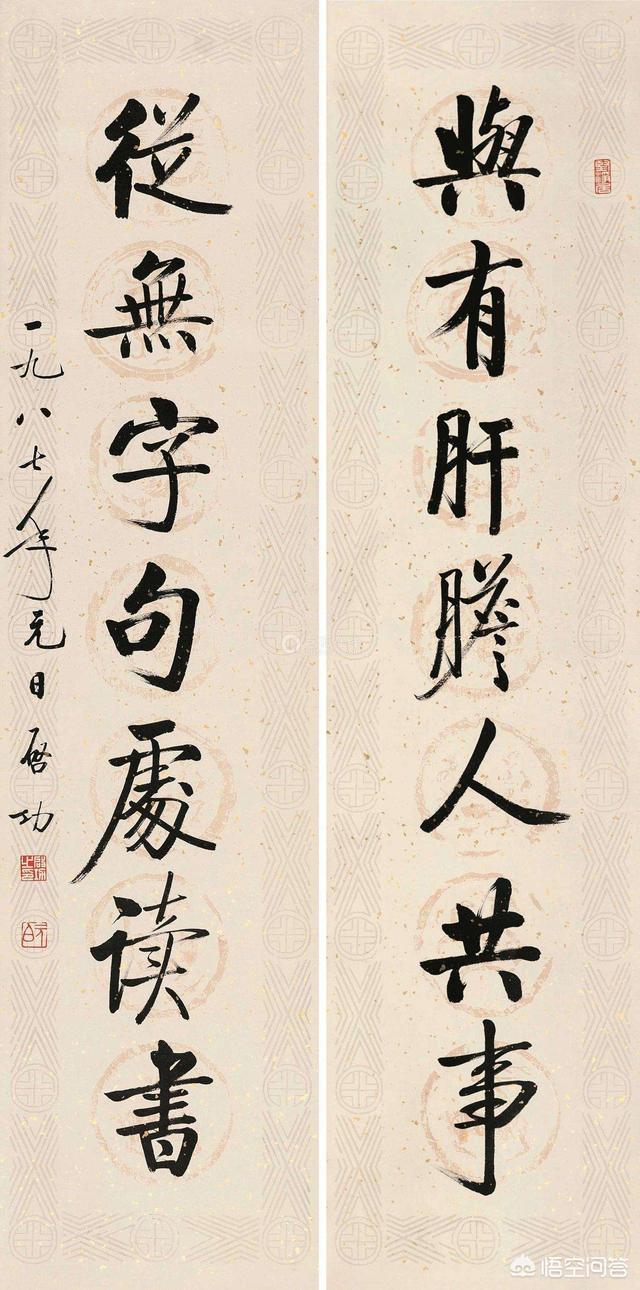 與有肝膽人共事
從無字句處读書
一九八七年元日启功
悟空问答